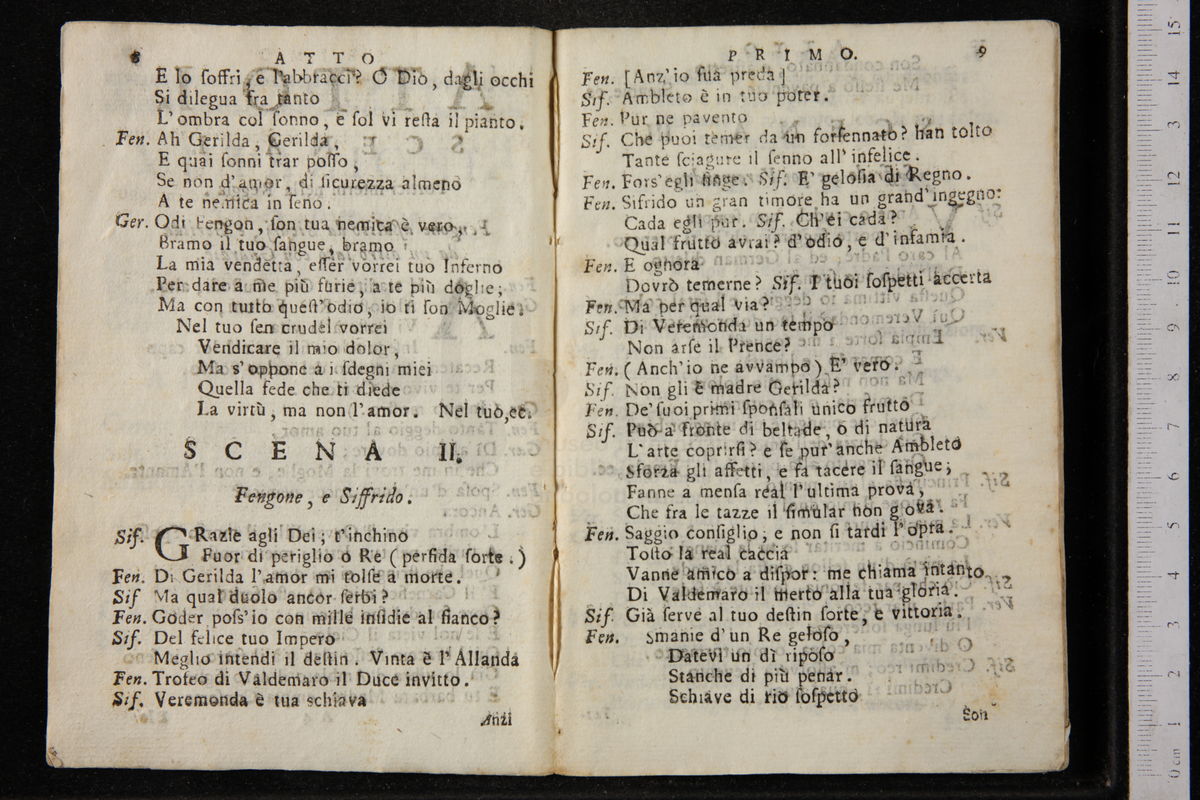 8 ATTO
E lo soffri, e l'abbracci? O Dio, dagli occhi
Si dilegua fra tanto
L'ombra col sonno, e sol vi resta il pianto.
Fen. Ah Gerilda, Gerilda,
E quai sonni trar posso,
Se non d'amor, di sicurezza almeno
A te nemica in seno.
Ger. Odi Fengon, son tua nemica è vero,
Bramo il tuo sangue, bramo
La mia vendetta, esser vorrei tuo Inferno
Per dare a me più furie, a te più doglie;
Ma con tutto quest'odio, io ti son Moglie.
Nel tuo sen crudel vorrei
Vendicare il mio dolor,
Ma s'oppone a i sdegni miei
Quella fede che ti diede
La virtù, ma non l'amor. Nel tuo, ec.
SCENA II.
Fengone, e Siffrido.
Sif. GRazie agli Dei; t'inchino
Fuor di periglio o Re (perfida sorte.)
Fen. Di Gerilda l'amor mi tolse a morte.
Sif Ma qual duolo ancor serbi?
Fen. Goder poss'io con mille insidie al fianco?
Sif. Del felice tuo Impero
Meglio intendi il destin. Vinta è l'Allanda
Fen. Trofeo di Valdemaro il Duce invitto.
Sif. Veremonda è tua schiava
Anzi
PRIMO. 9
Fen. [Anz'io sua preda]
Sif. Ambleto è in tuo poter.
Fen. Pur ne pavento
Sif. Che puoi temer da un forsennato? han tolto
Tante sciagure il senno all'infelice.
Fen. Fors'egli finge. Sif. E' gelosia di Regno.
Fen. Sifrido un gran timore ha un grand'ingegno:
Cada egli pur. Sif. Ch'ei cada?
Qual frutto avrai? d'odio, e d'infamia.
Fen. E ognora
Dovrò temerne? Sif. I tuoi sospetti accerta
Fen. Ma per qual via?
Sif. Di Veremonda un tempo
Non arse il Prence?
Fen. (Anch'io ne avvampo) E' vero.
Sif. Non gli è madre Gerilda?
Fen. De' suoi primi sponsali unico frutto
Sif. Può a fronte di beltade, o di natura
L'arte coprirsi? e se pur'anche Ambleto
Sforza gli affetti, e fa tacere il sangue;
Fanne a mensa real l'ultima prova,
Che fra le tazze il simular non giova.
Fen. Saggio consiglio; e non si tardi l'opra.
Tosto la real caccia
Vanne amico a dispor: me chiama intanto
Di Valdemaro il merto alla tua gloria.
Sif. Già serve al tuo destin sorte, e vittoria.
Fen. Smanie d'un Re geloso,
Datevi un dì riposo
Stanche di più penar.
Schiave di rio sospetto
Son
15
14
13
12
11
10
9
8
7
6
5
4
3
2
1
0 cm